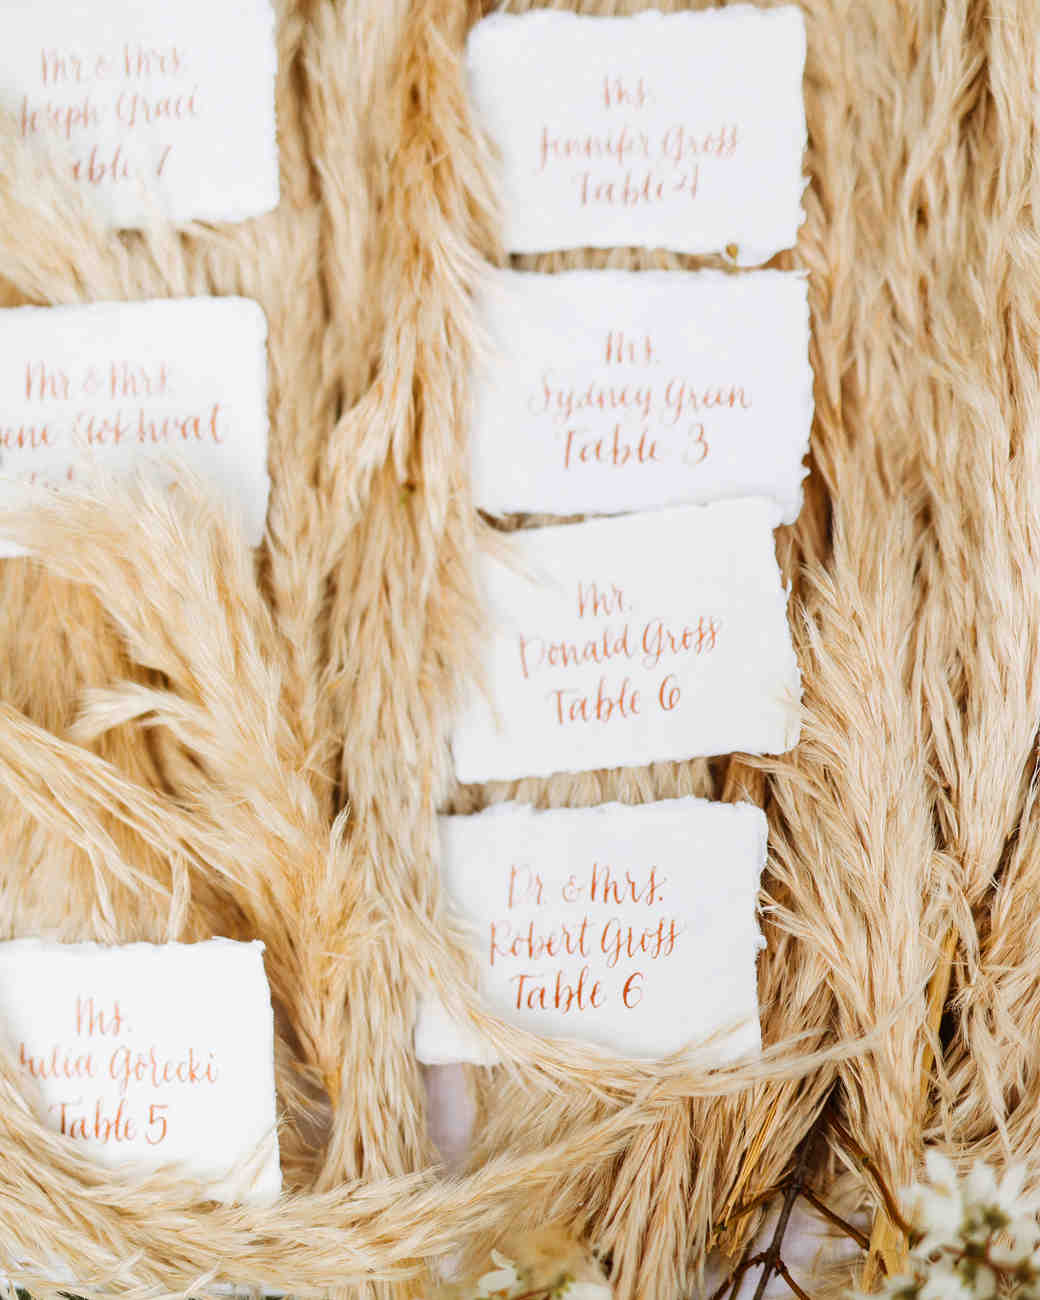 Mr & Mrs.
Joseph Graci
Table 7
Mr & Mrs.
Ms.
Julia Gorecki
Table 5
Ms.
Jennifer Gross
Table 4
Ms.
Sydney Green
Table 3
Mr.
Donald Gross
Table 6
Dr. & Mrs.
Robert Gross
Table 6